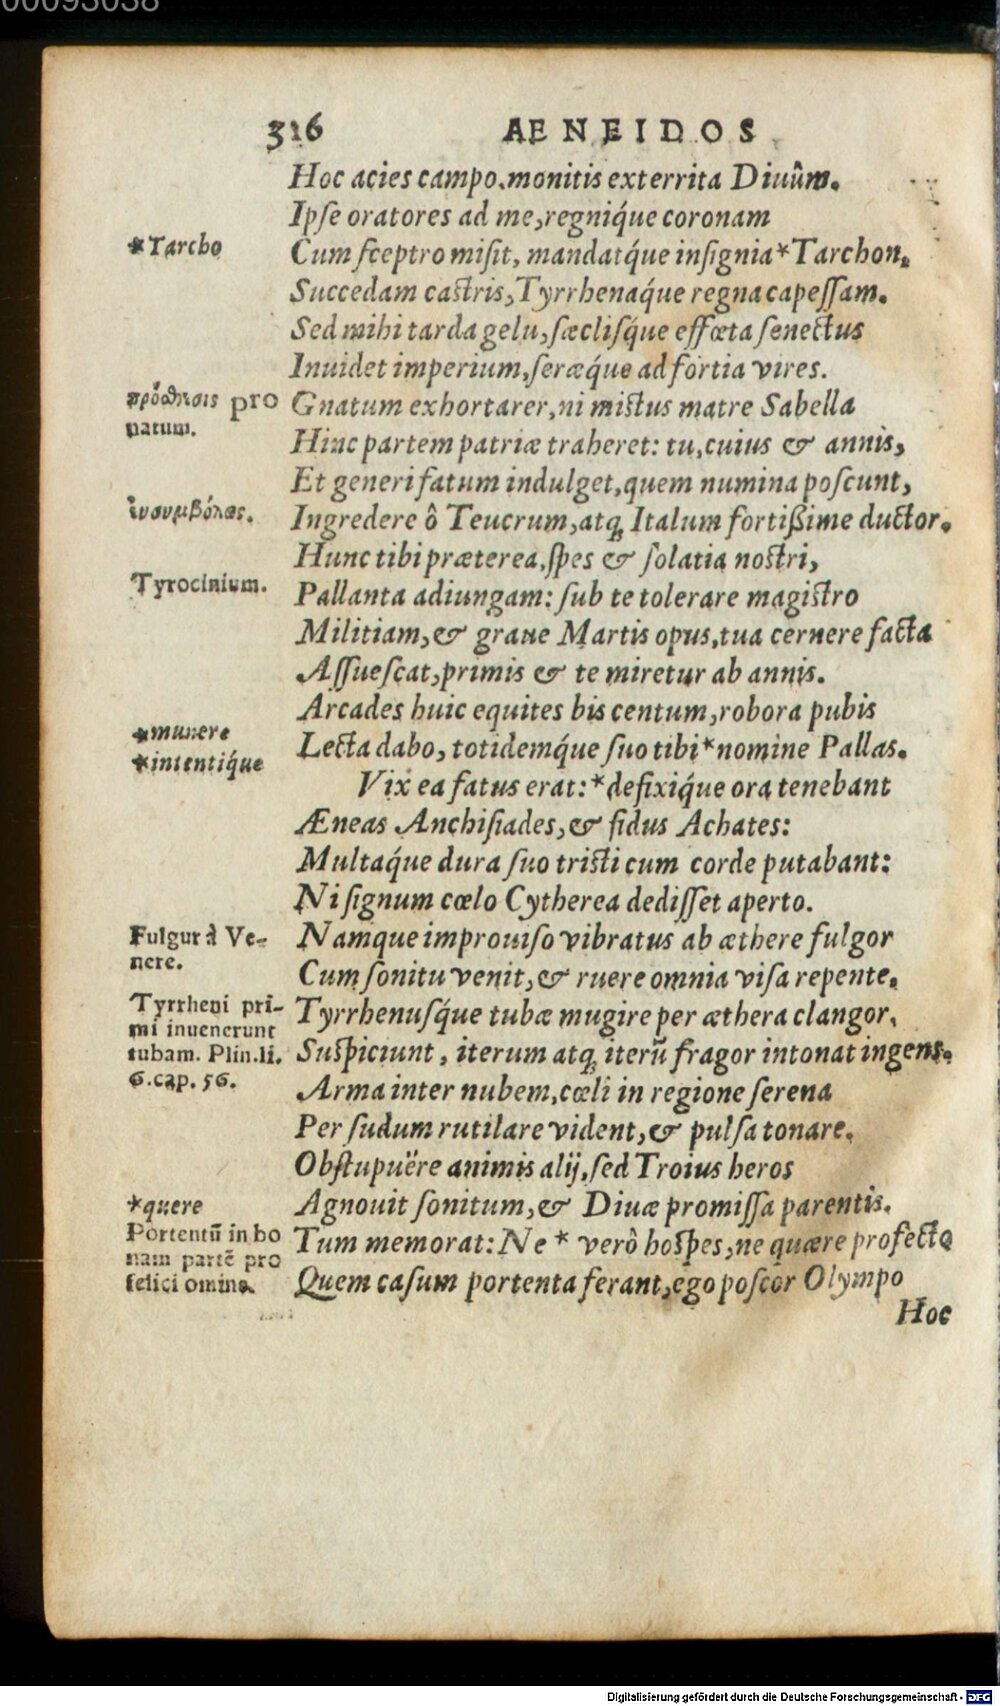 316 AENEIDOS
Hoc acies campo, monitis exterrita Diuûm.
Ipſe oratores ad me, regniq́ue coronam
*Tarcho
Cum ſceptro miſit, mandatq́ue inſignia *Tarchon,
Succedam caſtris, Tyrrhenaq́ue regna capeſſam.
Sed mihi tarda gelu, ſæcliſq́ue effœta ſenectus
Inuidet imperium, ſeræq́ue ad fortia vires.
πρόθεσις pro
natum.
Gnatum exhortarer, ni miſtus matre Sabella
Hinc partem patriæ traheret: tu, cuius & annis,
Et generi fatum indulget, quem numina poſcunt,
Ingredere ô Teucrum, atq; Italum fortißime ductor.
Hunc tibi præterea, ſpes & ſolatia noſtri,
Tyrocinium.
Pallanta adiungam: ſub te tolerare magiſtro
Militiam, & graue Martis opus, tua cernere facta
Aſſueſcat, primis & te miretur ab annis.
Arcades huic equites bis centum, robora pubis
*munere
Lecta dabo, totidemq́ue ſuo tibi *nomine Pallas.
*intentiq́ue
Vix ea fatus erat: *defixiq́ue ora tenebant
Æneas Anchiſiades, & fidus Achates:
Multaq́ue dura ſuo triſti cum corde putabant:
Ni ſignum cœlo Cytherea dediſſet aperto.
Fulgur à Ve-
nere.
Namque improuiſo vibratus ab æthere fulgor
Cum ſonitu venit, & ruere omnia viſa repente,
Tyrrheni pri-
mi inuenerunt
tubam. Plin. li.
6. cap. 56.
Tyrrhenuſq́ue tubæ mugire per æthera clangor,
Suſpiciunt, iterum atq; iterũ fragor intonat ingens.
Arma inter nubem, cœli in regione ſerena
Per ſudum rutilare vident, & pulſa tonare.
Obſtupuëre animis alij, ſed Troius heros
*quere
Agnouit ſonitum, & Diuæ promiſſa parentis.
Portentũ in bo
nam partẽ pro
felici omine.
Tum memorat: Ne * verò hoſpes, ne quære profecto
Quem caſum portenta ferant, ego poſcor Olympo
Hoc
Digitalisierung gefördert durch die Deutsche Forschungsgemeinschaft - DFG